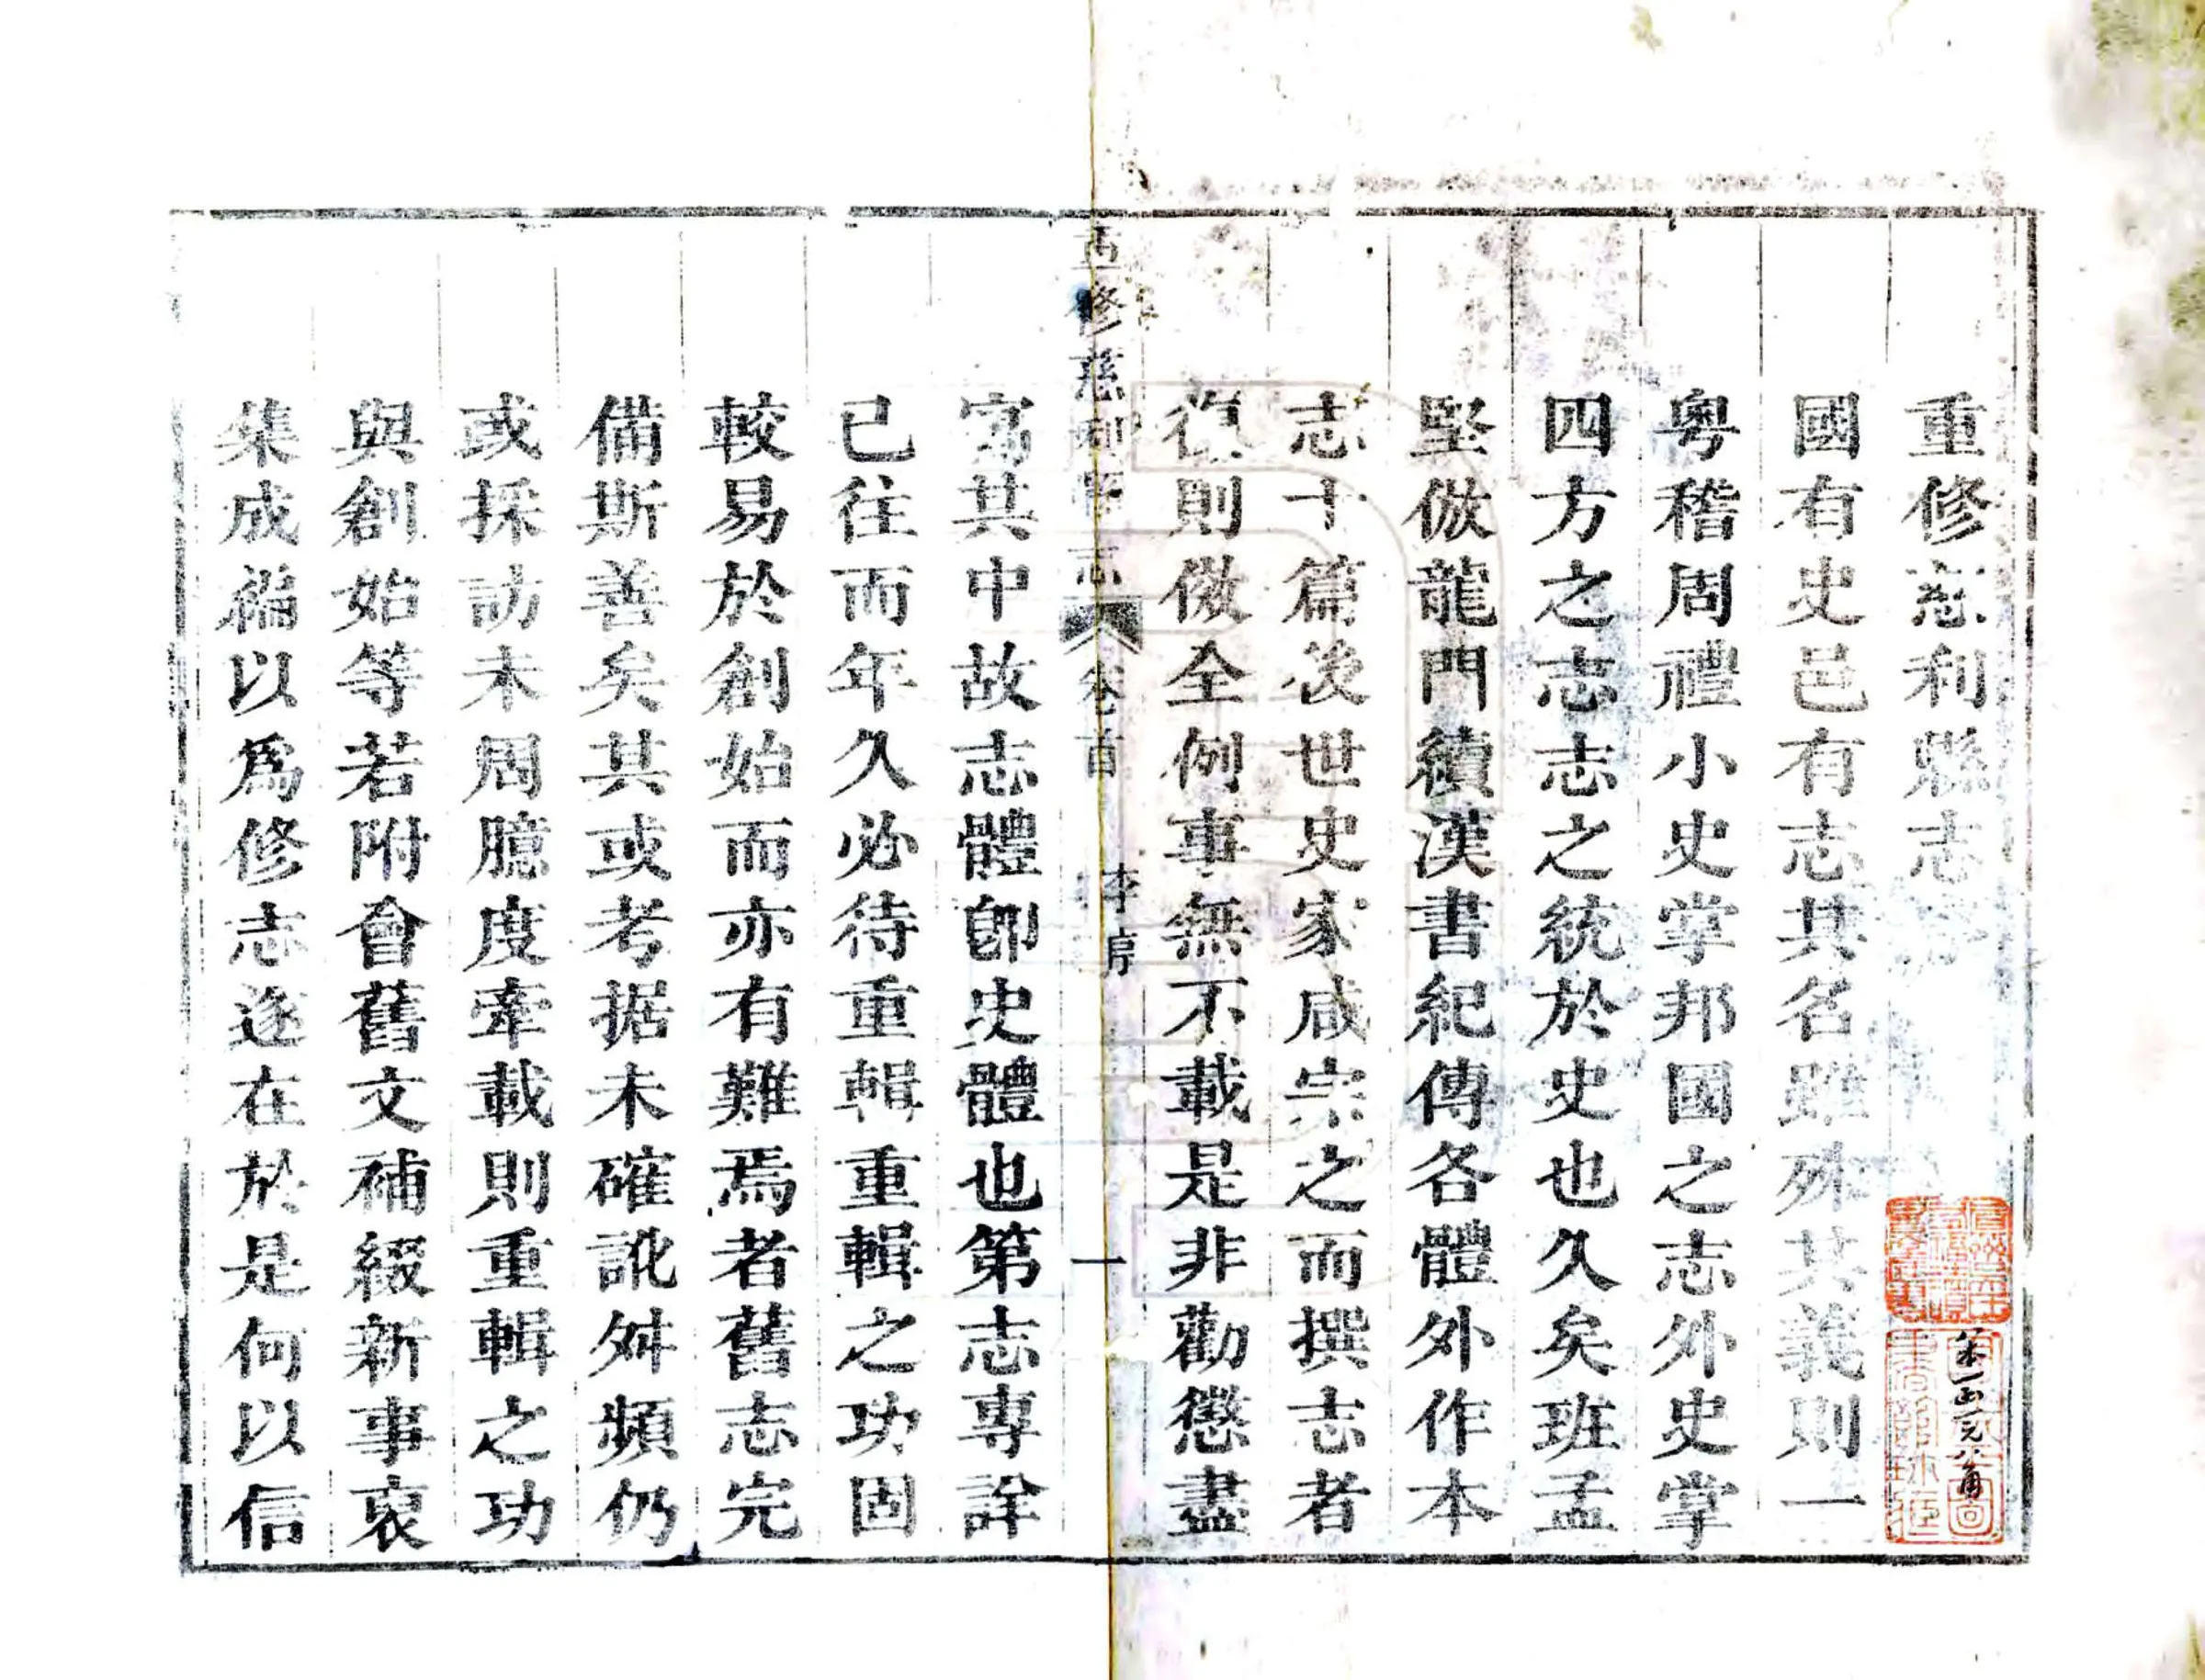 重修慈利縣志
國有史邑有志其名雖殊其義則一
粵稽周禮小史掌邦國之志外史掌
四方之志志之統於史也久矣班孟
堅倣龍門續漢書紀傳各體外作本
志十篇後世史家咸宗之而撰志者
復則倣全例事無不載是非勸懲盡
寓其中故志體卽史體也第志專詳
已往而年久必待重輯重輯之功固
較易於創始而亦有難焉者舊志完
備斯善矣其或考据未確訛舛頻仍
或採訪未周臆度牽載則重輯之功
與創始等若附會舊文補綴新事裒
集成編以爲修志遂在於是何以信
重修慈利縣志
卷首
李序
一